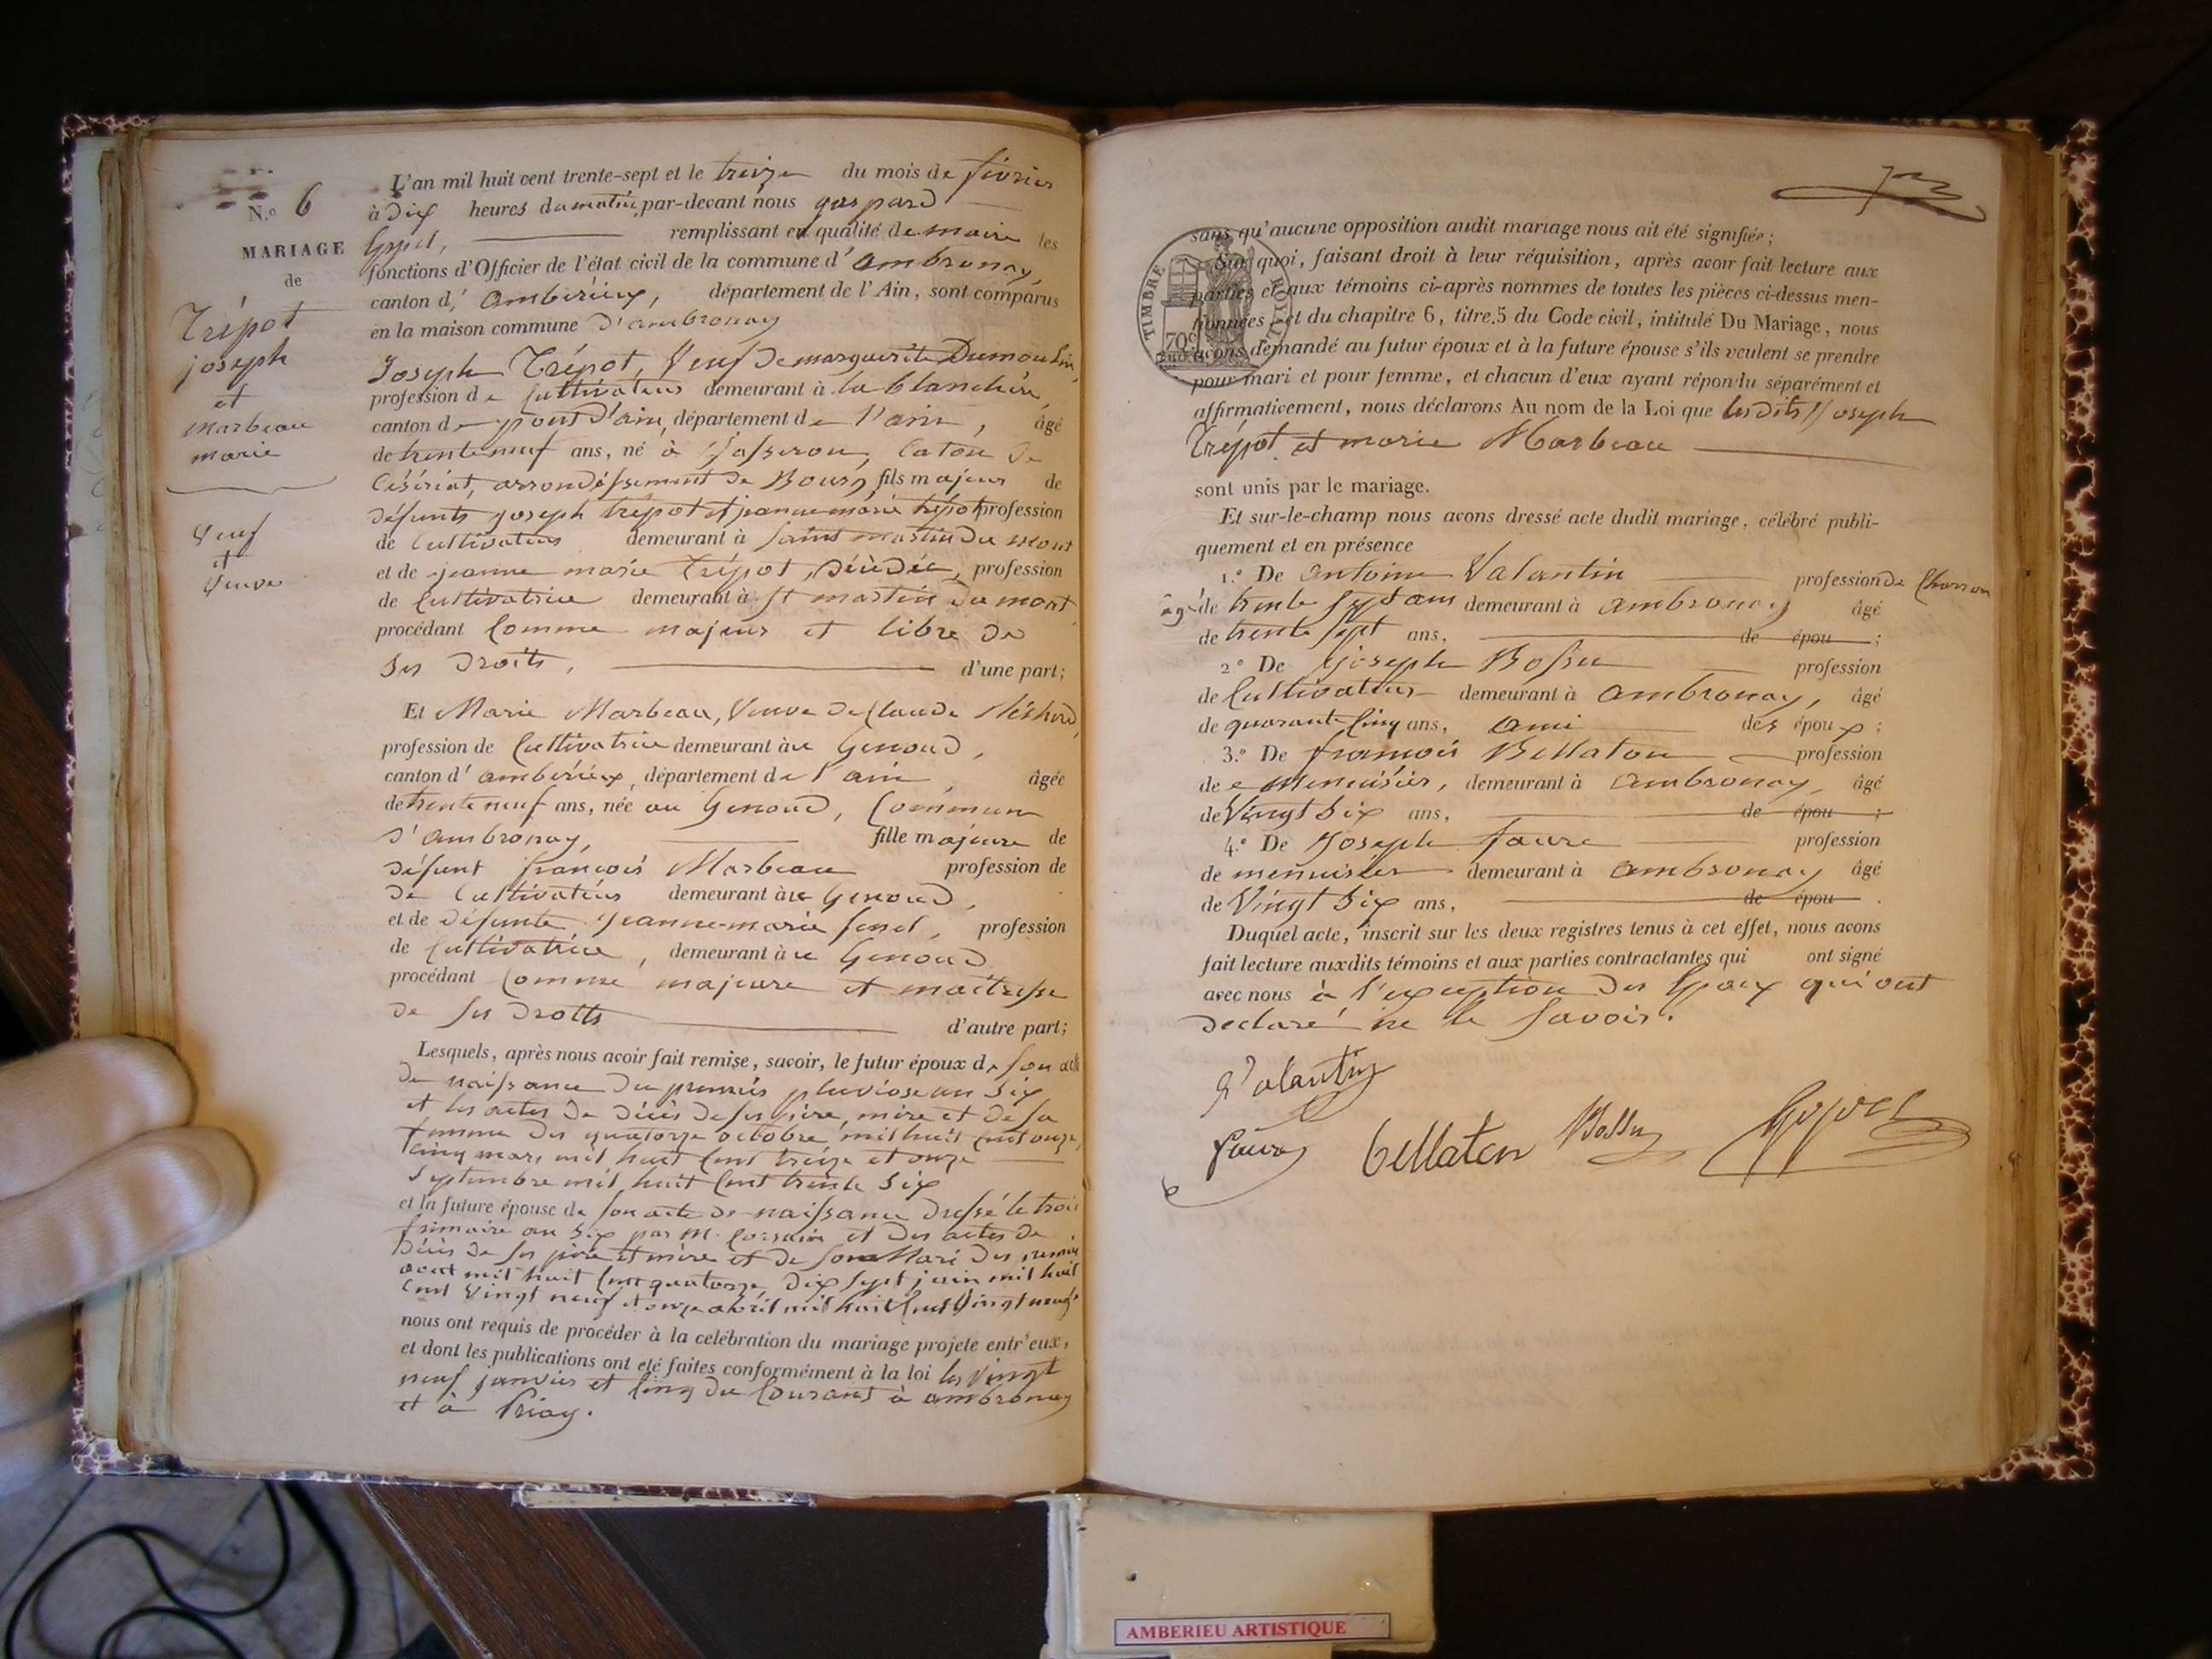 N.o 6
MARIAGE
de
Trépot
joseph
et
marbeau
marie
Veuf
et
Veuve
L'an mil huit cent trente-sept et le treize du mois de février
à Dix heures du matin, par-devant nous gaspard
remplissant en qualité de maire les
fonctions d'Officier de l'état civil de la commune d'ambronay,
canton d'ambérieux, département de l'Ain, sont comparus
en la maison commune d'ambronay
Joseph Trépot, Veuf de marguerite Dumoulin,
profession de Cultivateur demeurant à la blanchère,
canton de pont d'ain, département de l'ain, âgé
de trente neuf ans, né à Jasseron, Caton de
Céseriat, arrondissement de Bourg, fils majeur de
défunts joseph trepot et jeanne marie trépot profession
de Cultivateur demeurant à saint martin du mont
et de jeanne marie Trépot, décédée, profession
de Cultivatrice demeurant à St martin du mont,
procédant Comme majeur et libre de
ses Droits, d'une part;
Et Marie Marbeau, Veuve de Claude
profession de Cultivatrice demeurant au Genoud,
canton d'ambérieux, département de l'ain, âgée
de trente neuf ans, née au Genoud, Commune
d'ambronay, fille majeure de
défunt françois Marbeau profession de
de Cultivateur demeurant au Genoud,
et de défunte jeanne-marie, profession
de Cultivatrice, demeurant au Genoud
procédant Comme majeure et maitresse
de ses Droits d'autre part;
Lesquels, après nous avoir fait remise, savoir, le futur époux de son acte
de naissance du premier pluviose an Six
et les actes de décès de ses père, mère et de sa
femme des quatorze octobre mil huit Cent onze,
Cinq mars mil huit Cent treize et onze
Septembre mil huit Cent trente Six
et la future épouse de son acte de naissance Dressé le trois
frimaire an Six par M. et des actes de
Décès de ses père et mère et de son Mari des premier
aout mil huit Cent quatorze, Dix Sept juin mil huit
Cent Vingt neuf et onze abril mil huit Cent Vingt neuf
nous ont requis de procéder à la celébration du mariage projeté entr'eux,
et dont les publications ont eté faites conformément à la loi les Vingt
neuf janvier et Cinq du Courant à ambronay
et à Priay.
TIMBRE ROYAL
70c
sans qu'aucune opposition audit mariage nous ait été signifiée;
Sur quoi, faisant droit à leur réquisition, après avoir fait lecture aux
parties et aux témoins ci-après nommés de toutes les pièces ci-dessus men-
tionnées, et du chapitre 6, titre 5 du Code civil, intitulé Du Mariage, nous
avons demandé au futur époux et à la future épouse s'ils veulent se prendre
pour mari et pour femme, et chacun d'eux ayant répondu séparément et
affirmativement, nous déclarons Au nom de la Loi que lesdits Joseph
Trépot et marie Marbeau
sont unis par le mariage.
Et sur-le-champ nous avons dressé acte dudit mariage, célébré publi-
quement et en présence
1.o De antoine Valantin profession de Charron
âgé de trente sept ans demeurant à ambronay âgé
de trente sept ans, de épou ;
2.o De Joseph Bossu profession
de Cultivateur demeurant à ambronay, âgé
de quarante Cinq ans, ami des époux ;
3.o De françois Bellaton profession
de Menuisier, demeurant à ambronay, âgé
de Vingt Six ans, de épou ;
4.o De Joseph faure profession
de menuisier demeurant à ambronay âgé
de Vingt Six ans, de épou .
Duquel acte, inscrit sur les deux registres tenus à cet effet, nous avons
fait lecture auxdits témoins et aux parties contractantes qui ont signé
avec nous à l'exception des Epoux qui ont
declaré ne le Savoir.
Valantin
faure bellaton Bossu
AMBERIEU ARTISTIQUE